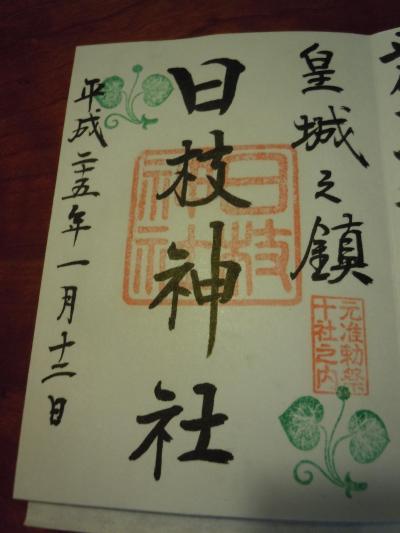 皇城之鎮
元准勅祭
十社之内
日枝神社
日枝
神社
平成二十五年一月十二日